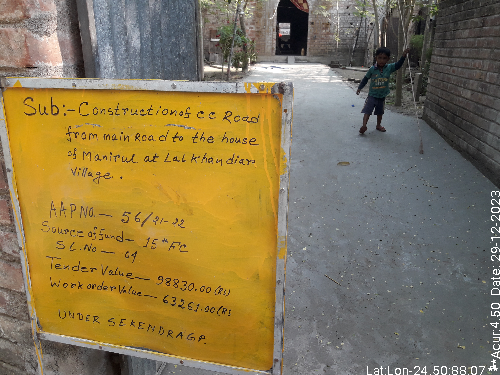 Sub:- Construction of c c Road
from main Road to the house
of Manirul at Lalkhandiar
village.
A A P NO.— 56/21-22
Source of fund — 15th FC
SL. No — 64
Tender Value — 98830.00 (Rs)
Work order Value — 63261.00 (Rs)
UNDER SEKENDRA GP.
Lat:Lon-24.50:88.07
**Acur:4.50 Date, 29-12-2023